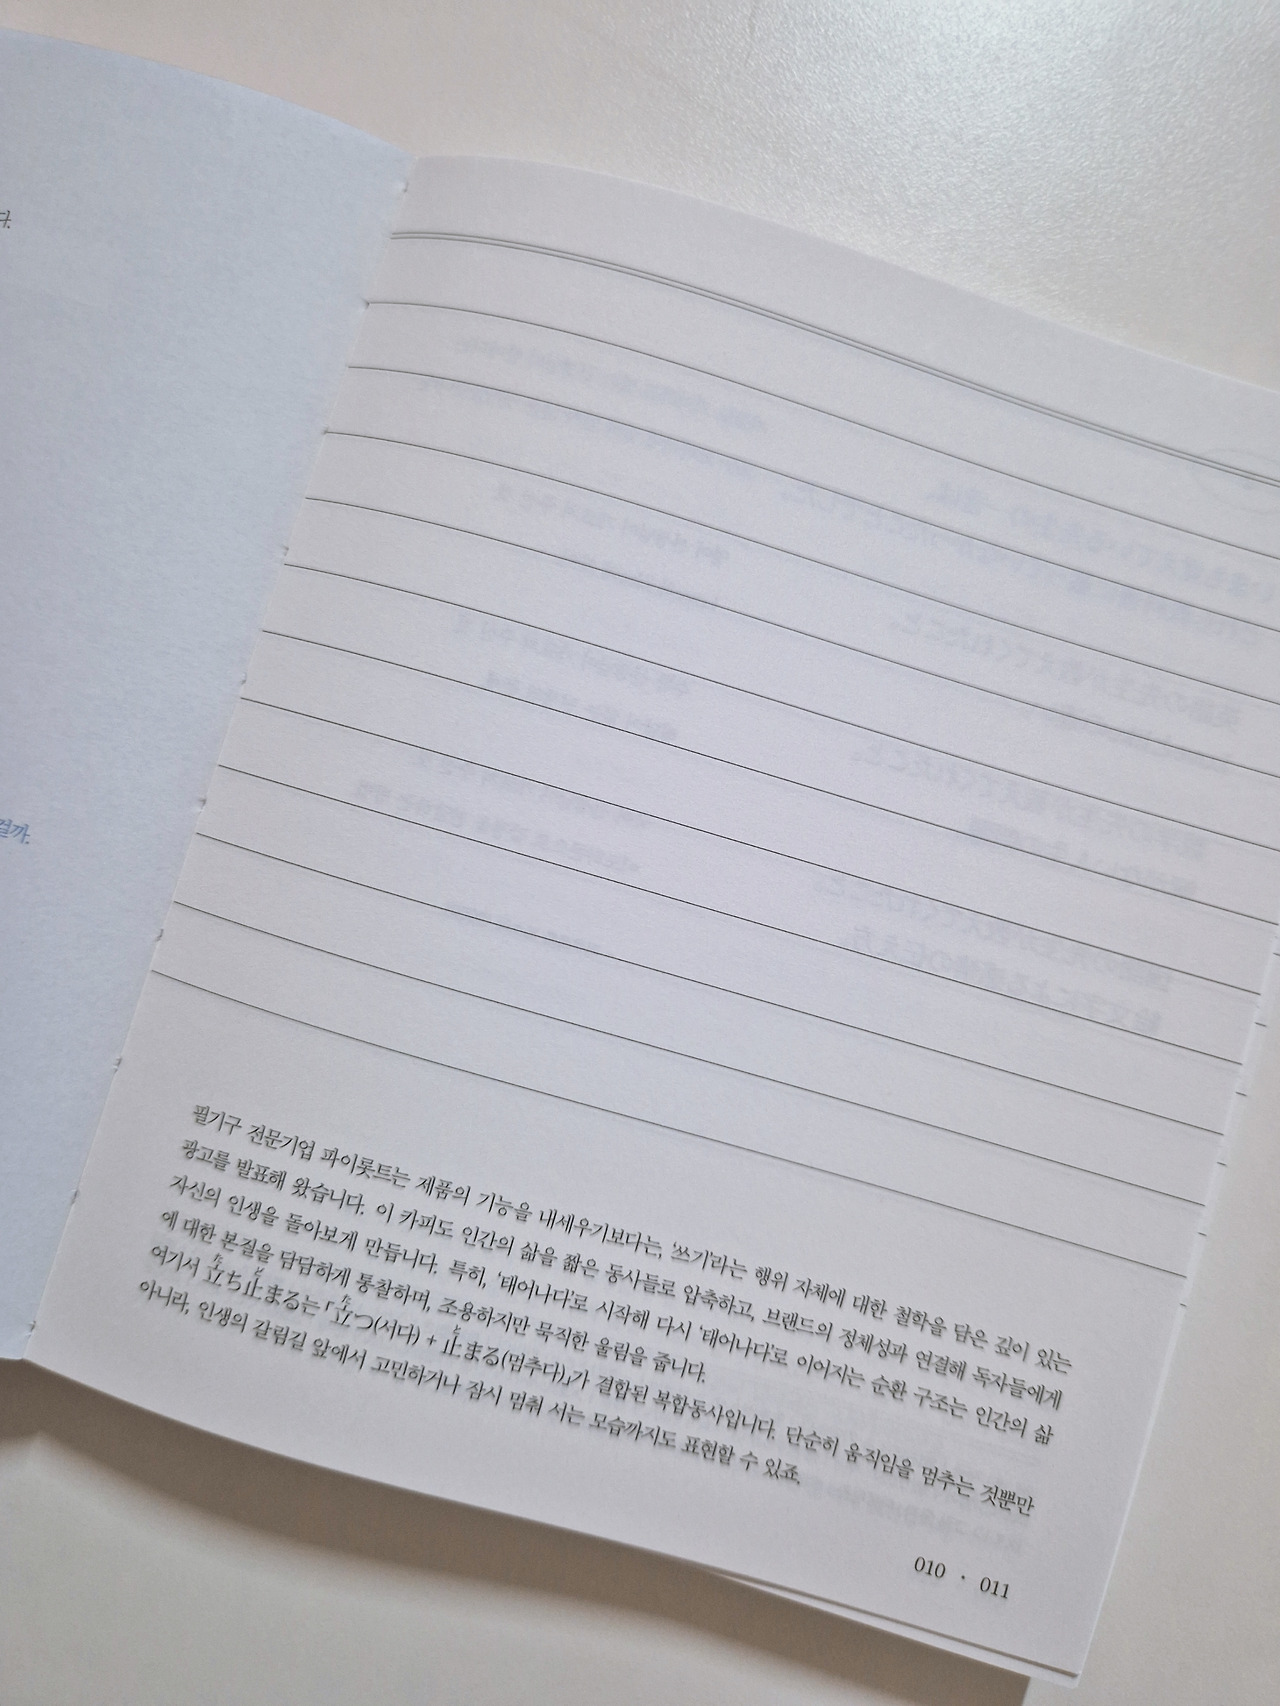 다.
걸까.
필기구 전문기업 파이롯트는 제품의 기능을 내세우기보다는, '쓰기'라는 행위 자체에 대한 철학을 담은 깊이 있는
광고를 발표해 왔습니다. 이 카피도 인간의 삶을 짧은 동사들로 압축하고, 브랜드의 정체성과 연결해 독자들에게
자신의 인생을 돌아보게 만듭니다. 특히, '태어나다'로 시작해 다시 '태어나다'로 이어지는 순환 구조는 인간의 삶
에 대한 본질을 담담하게 통찰하며, 조용하지만 묵직한 울림을 줍니다.
여기서 立ち止まる는 「立つ(서다) + 止まる(멈추다)」가 결합된 복합동사입니다. 단순히 움직임을 멈추는 것뿐만
아니라, 인생의 갈림길 앞에서 고민하거나 잠시 멈춰 서는 모습까지도 표현할 수 있죠.
010 · 011